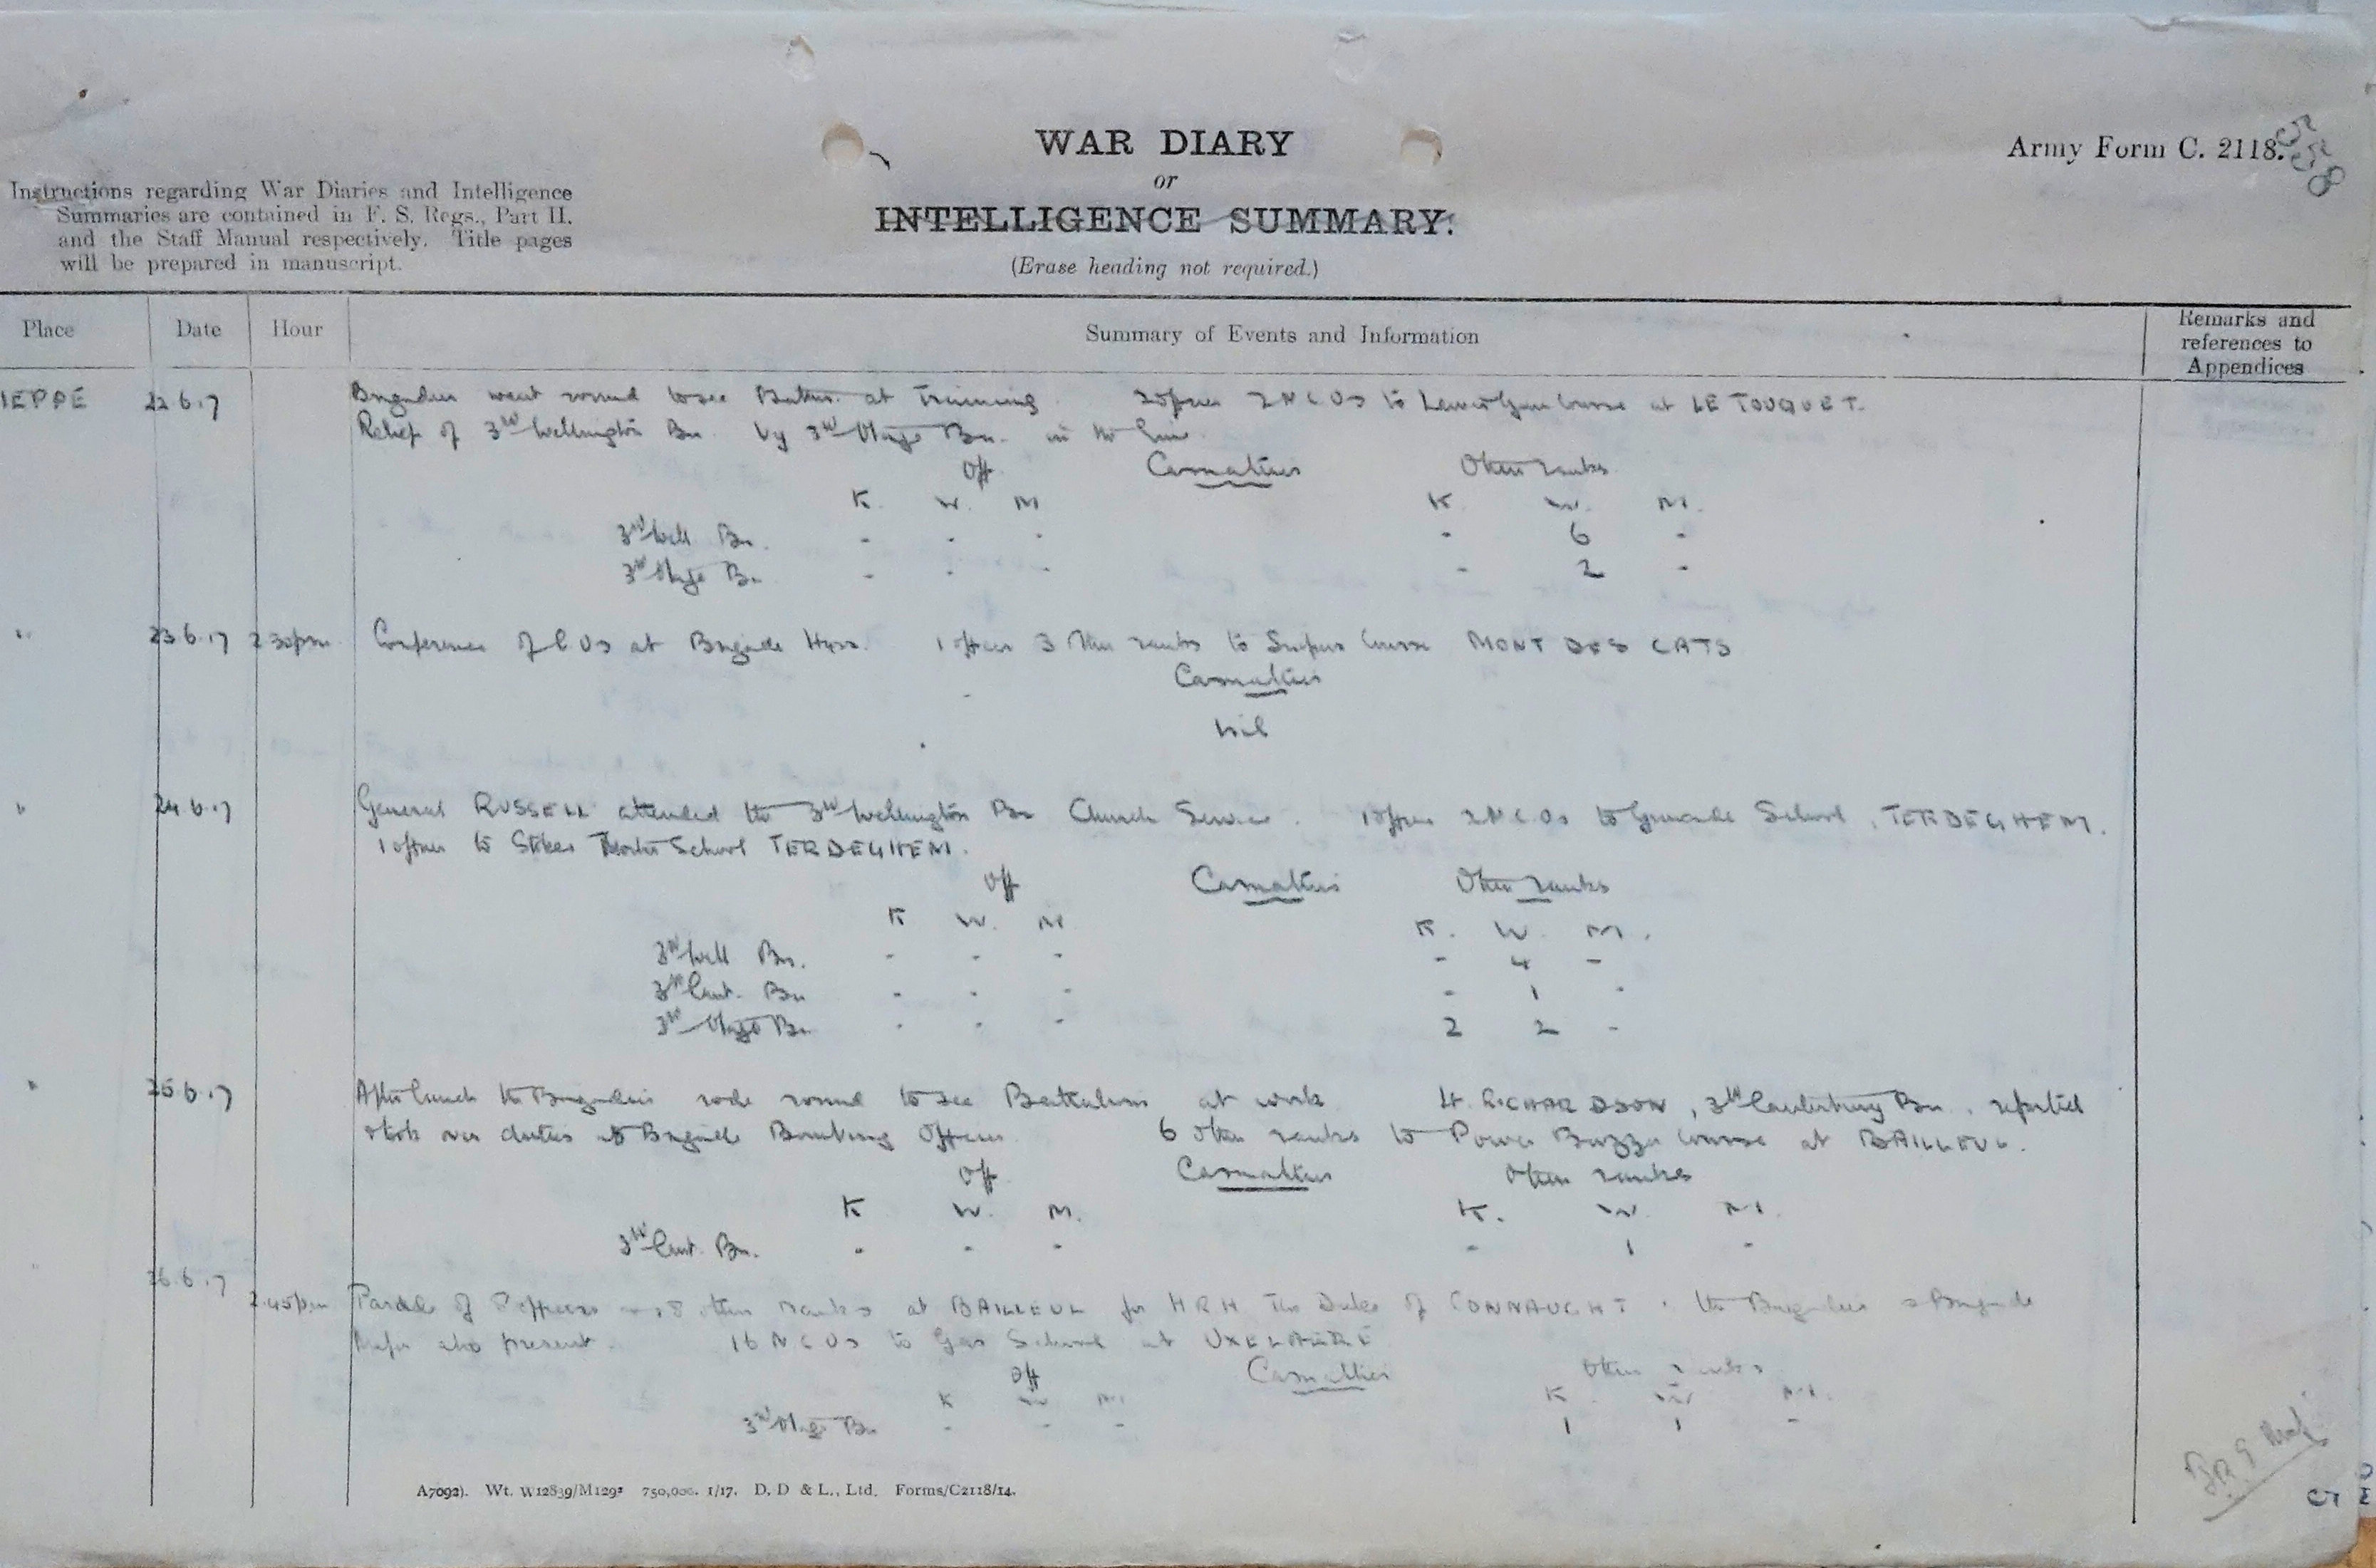 WAR DIARY
or
INTELLIGENCE SUMMARY.
(Erase heading not required.)
Army Form C. 2118.
558
Instructions regarding War Diaries and Intelligence
Summaries are contained in F. S. Regs., Part II.
and the Staff Manual respectively. Title pages
will be prepared in manuscript.
Place Date Hour Summary of Events and Information Remarks and references to Appendices
IEPPE 22.6.17 Brigadier went round to see Battns. at Training. 2 Officers 2 NCOs to Lewis Gun Course at LE TOUQUET.
Relief of 3rd Wellington Bn. by 3rd Otago Bn. in the line.
Off Casualties Other ranks
K. W. M K W. M.
3rd Well Bn. - - - - 6 -
3rd Otago Bn - - - - 2 -
" 23.6.17 2.30pm Conference of COs at Brigade Hqrs. 1 officer 3 other ranks to Snipers Course MONT DES CATS
Casualties
Nil
" 24.6.17 General RUSSELL attended the 3rd Wellington Bn Church Service. 1 officer 2 N.C.Os to Grenade School, TERDEGHEM.
1 officer to Stokes Mortar School TERDEGHEM.
Off Casualties Other ranks
K W. M K. W. M.
3rd Well Bn. - - - - 4 -
3rd Cant. Bn - - - - 1 -
3rd Otago Bn. - - - 2 2 -
" 25.6.17 After lunch the Brigadier rode round to see Battalions at work Lt. RICHARDSON, 3rd Canterbury Bn. reported
& took over duties as Brigade Bombing Officer. 6 other ranks to Power Buzzer Course at BAILLEUL.
Off Casualties Other ranks
K W. M. K. W. M.
3rd Cant. Bn. - - - - 1 -
26.6.17 2.45pm Parade of officers other ranks at BAILLEUL for HRH The Duke of CONNAUGHT. the Brigadier & Brigade
Major also present. 16 NCOs to Gas School at OXELAERE
Off Casualties Other ranks
K W M K W M.
3rd Otago Bn - - - 1 1 -
A7092). Wt. W12839/M1293 750,000. 1/17. D. D & L., Ltd. Forms/C2118/14.